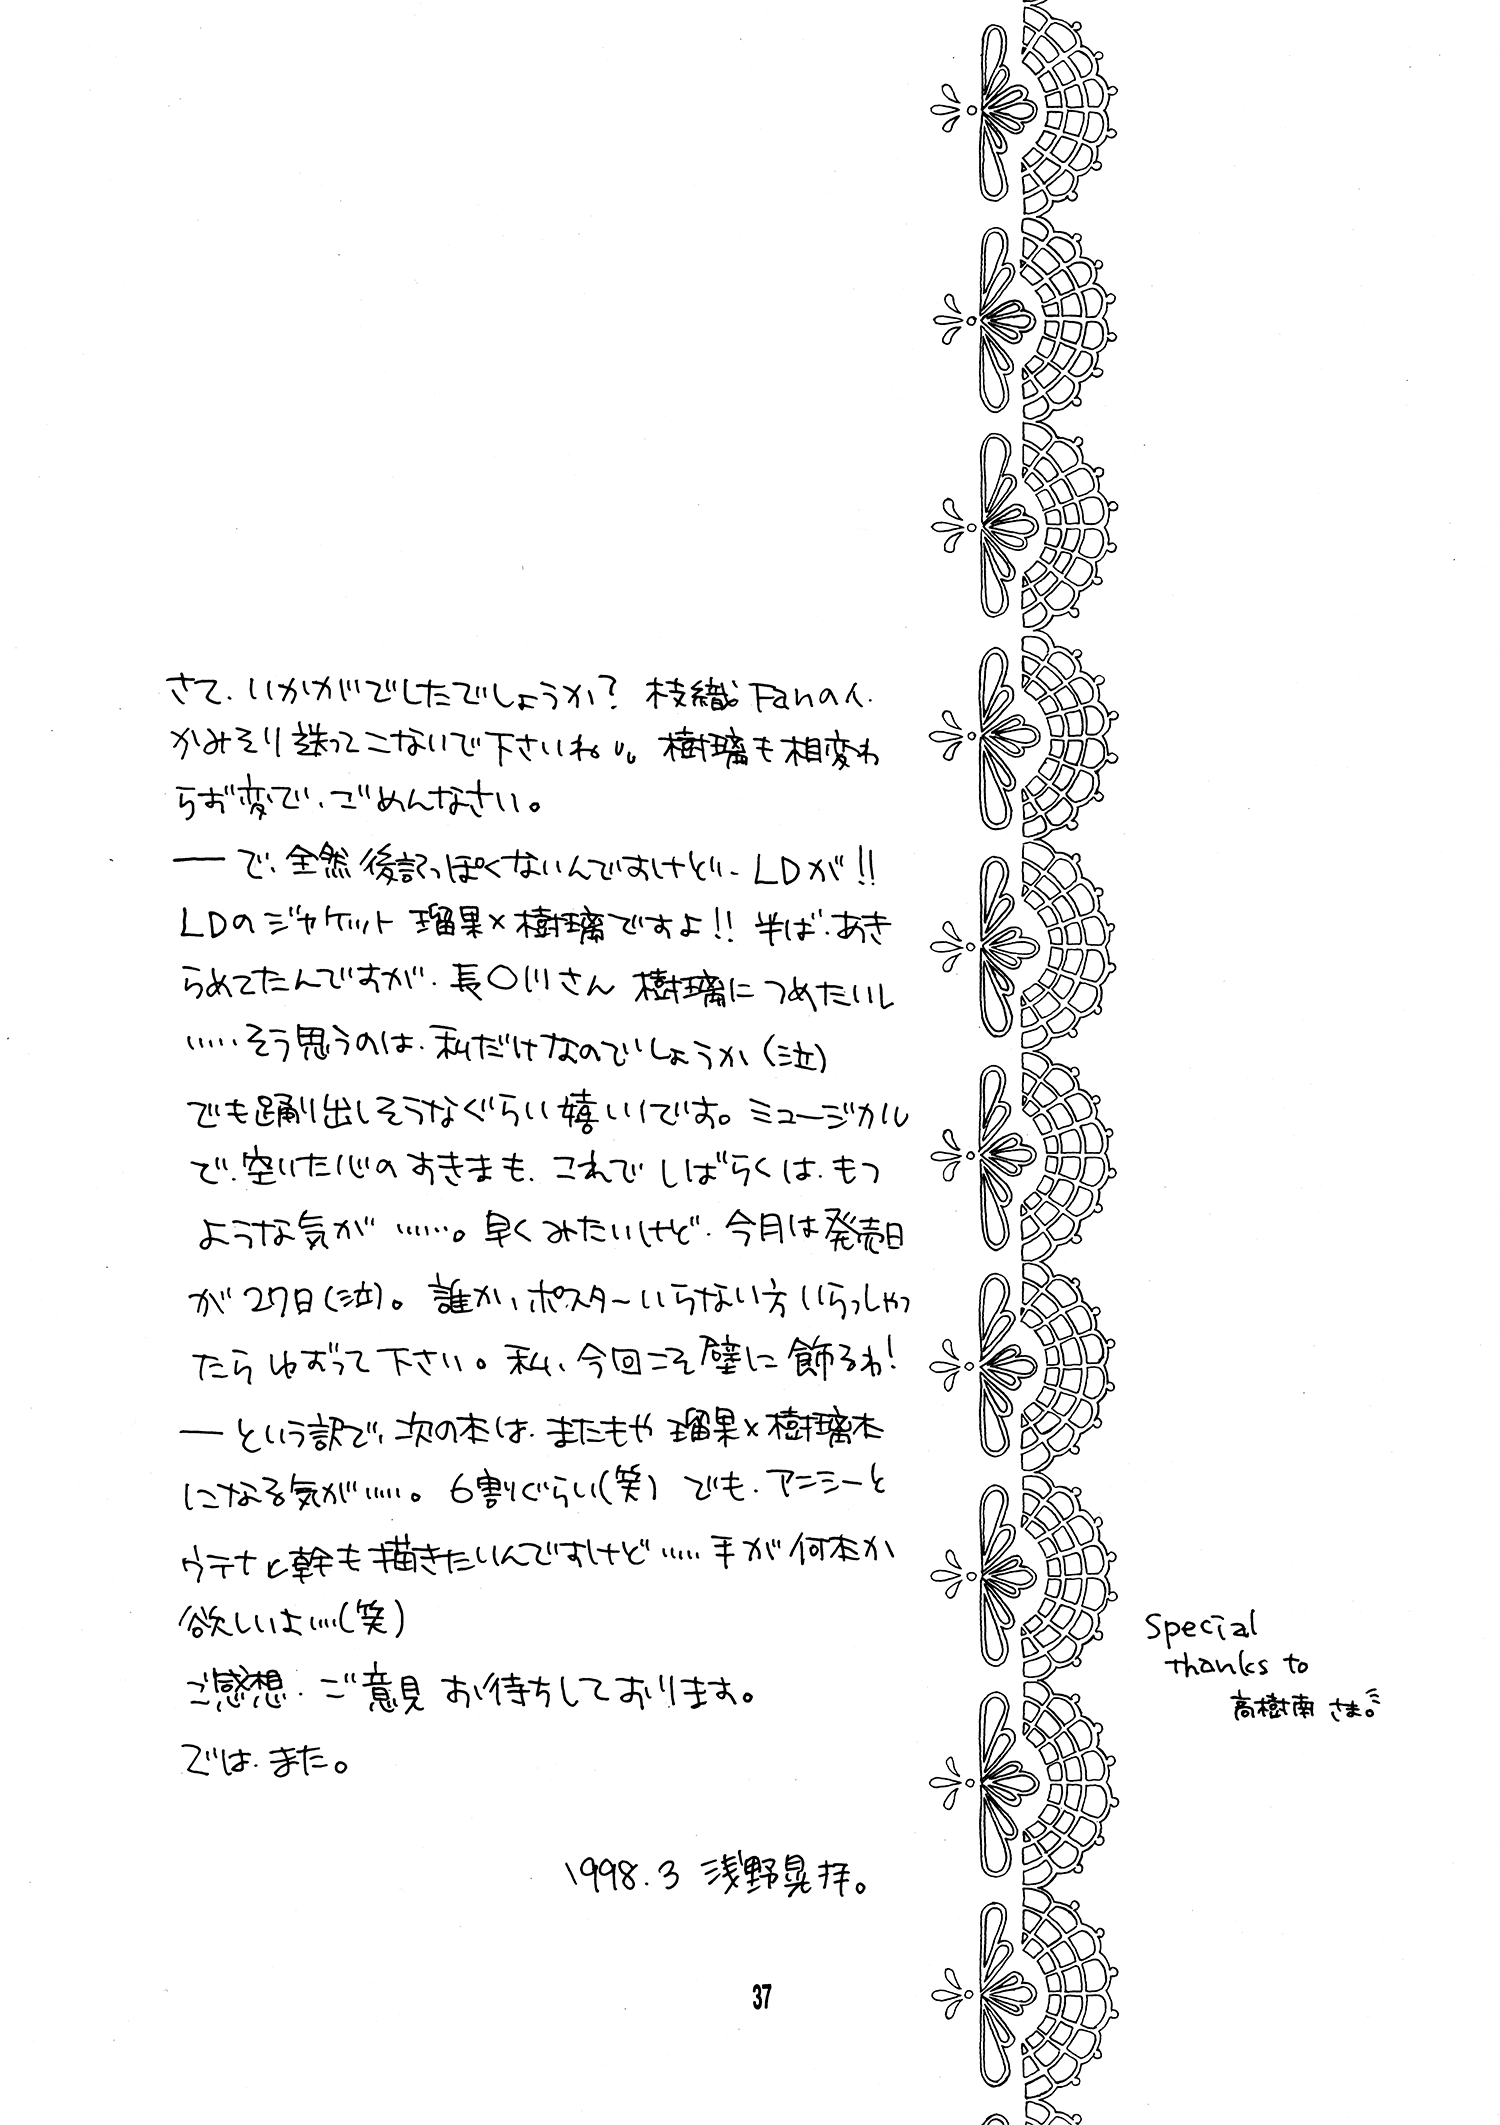 さて、いかがでしたでしょうか？ 枝織Fanの人、
かみそり送ってこないで下さいね。樹璃も相変わ
らず変で、ごめんなさい。
── で、全然後記っぽくないんですけど、LDが!!
LDのジャケット 瑠果×樹璃ですよ!! 半ば、あき
らめてたんですが、長〇川さん 樹璃につめたいし
……そう思うのは、私だけなのでしょうか（泣）
でも踊り出しそうなぐらい嬉しいです。ミュージカル
で、空いた心のすきまも、これで しばらくは、もつ
ような気が……。早くみたいけど、今月は発売日
が27日（泣）。誰か、ポスターいらない方いらっしゃっ
たら ゆずって下さい。私、今回こそ壁に飾るわ!
── という訳で、次の本は、またもや 瑠果×樹璃本
になる気が……。6割ぐらい（笑） でも、アンシーと
ウテナと幹も描きたいんですけど……手が何本か
欲しいよ……（笑）
ご感想、ご意見 お待ちしております。
では、また。
1998.3 浅野晃拝。
Special
thanks to
高樹南 さま。
37